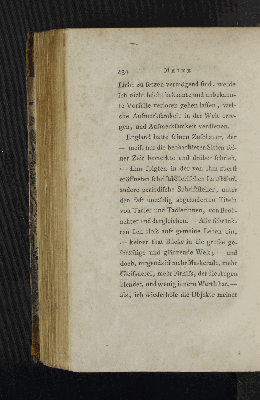 434 MEINE
Licht zu setzen vermögend sind, werde
ich nicht leicht bekannte und unbekann-
te Vorfälle verloren gehen lassen, wel-
che Aufmerksamkeit in der Welt erre-
gen, und Aufmerksamkeit verdienen.
England hatte seinen Zuschauer, der
— meist nur die beobachteten Sitten sei-
ner Zeit bemerkte und drüber schrieb.
— Ihm folgten in der von ihm zuerst
eröffneten schriftstellerischen Laufbahn,
andere periodische Schriftsteller, unter
den fast unzählig abgeänderten Titeln
von Tatler und Tadlerinnen, von Beob-
achter und dergleichen. — Alle schränk-
ten sich blos aufs gemeine Leben ein,
— keiner that Blicke in die große ge-
schäftige und glänzende Welt; — und
doch, nirgends ist mehr Maskerade, mehr
Gleisnerei, mehr Firniss, der die Augen
blendet, und wenig innern Werth hat. —
Dis, ich wiederhole die Objekte meiner